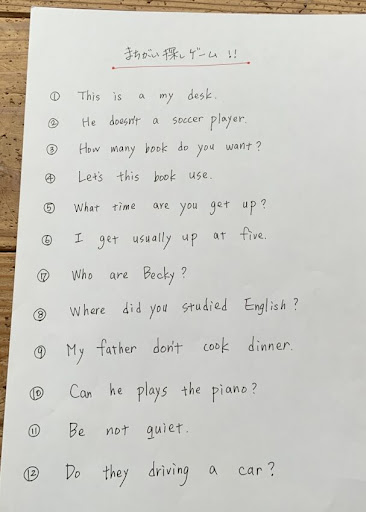 まちがい探しゲーム!!
① This is a my desk.
② He doesn't a soccer player.
③ How many book do you want?
④ Let's this book use.
⑤ What time are you get up?
⑥ I get usually up at five.
⑰ Who are Becky?
⑧ Where did you studied English?
⑨ My father don't cook dinner.
⑩ Can he plays the piano?
⑪ Be not quiet.
⑫ Do they driving a car?